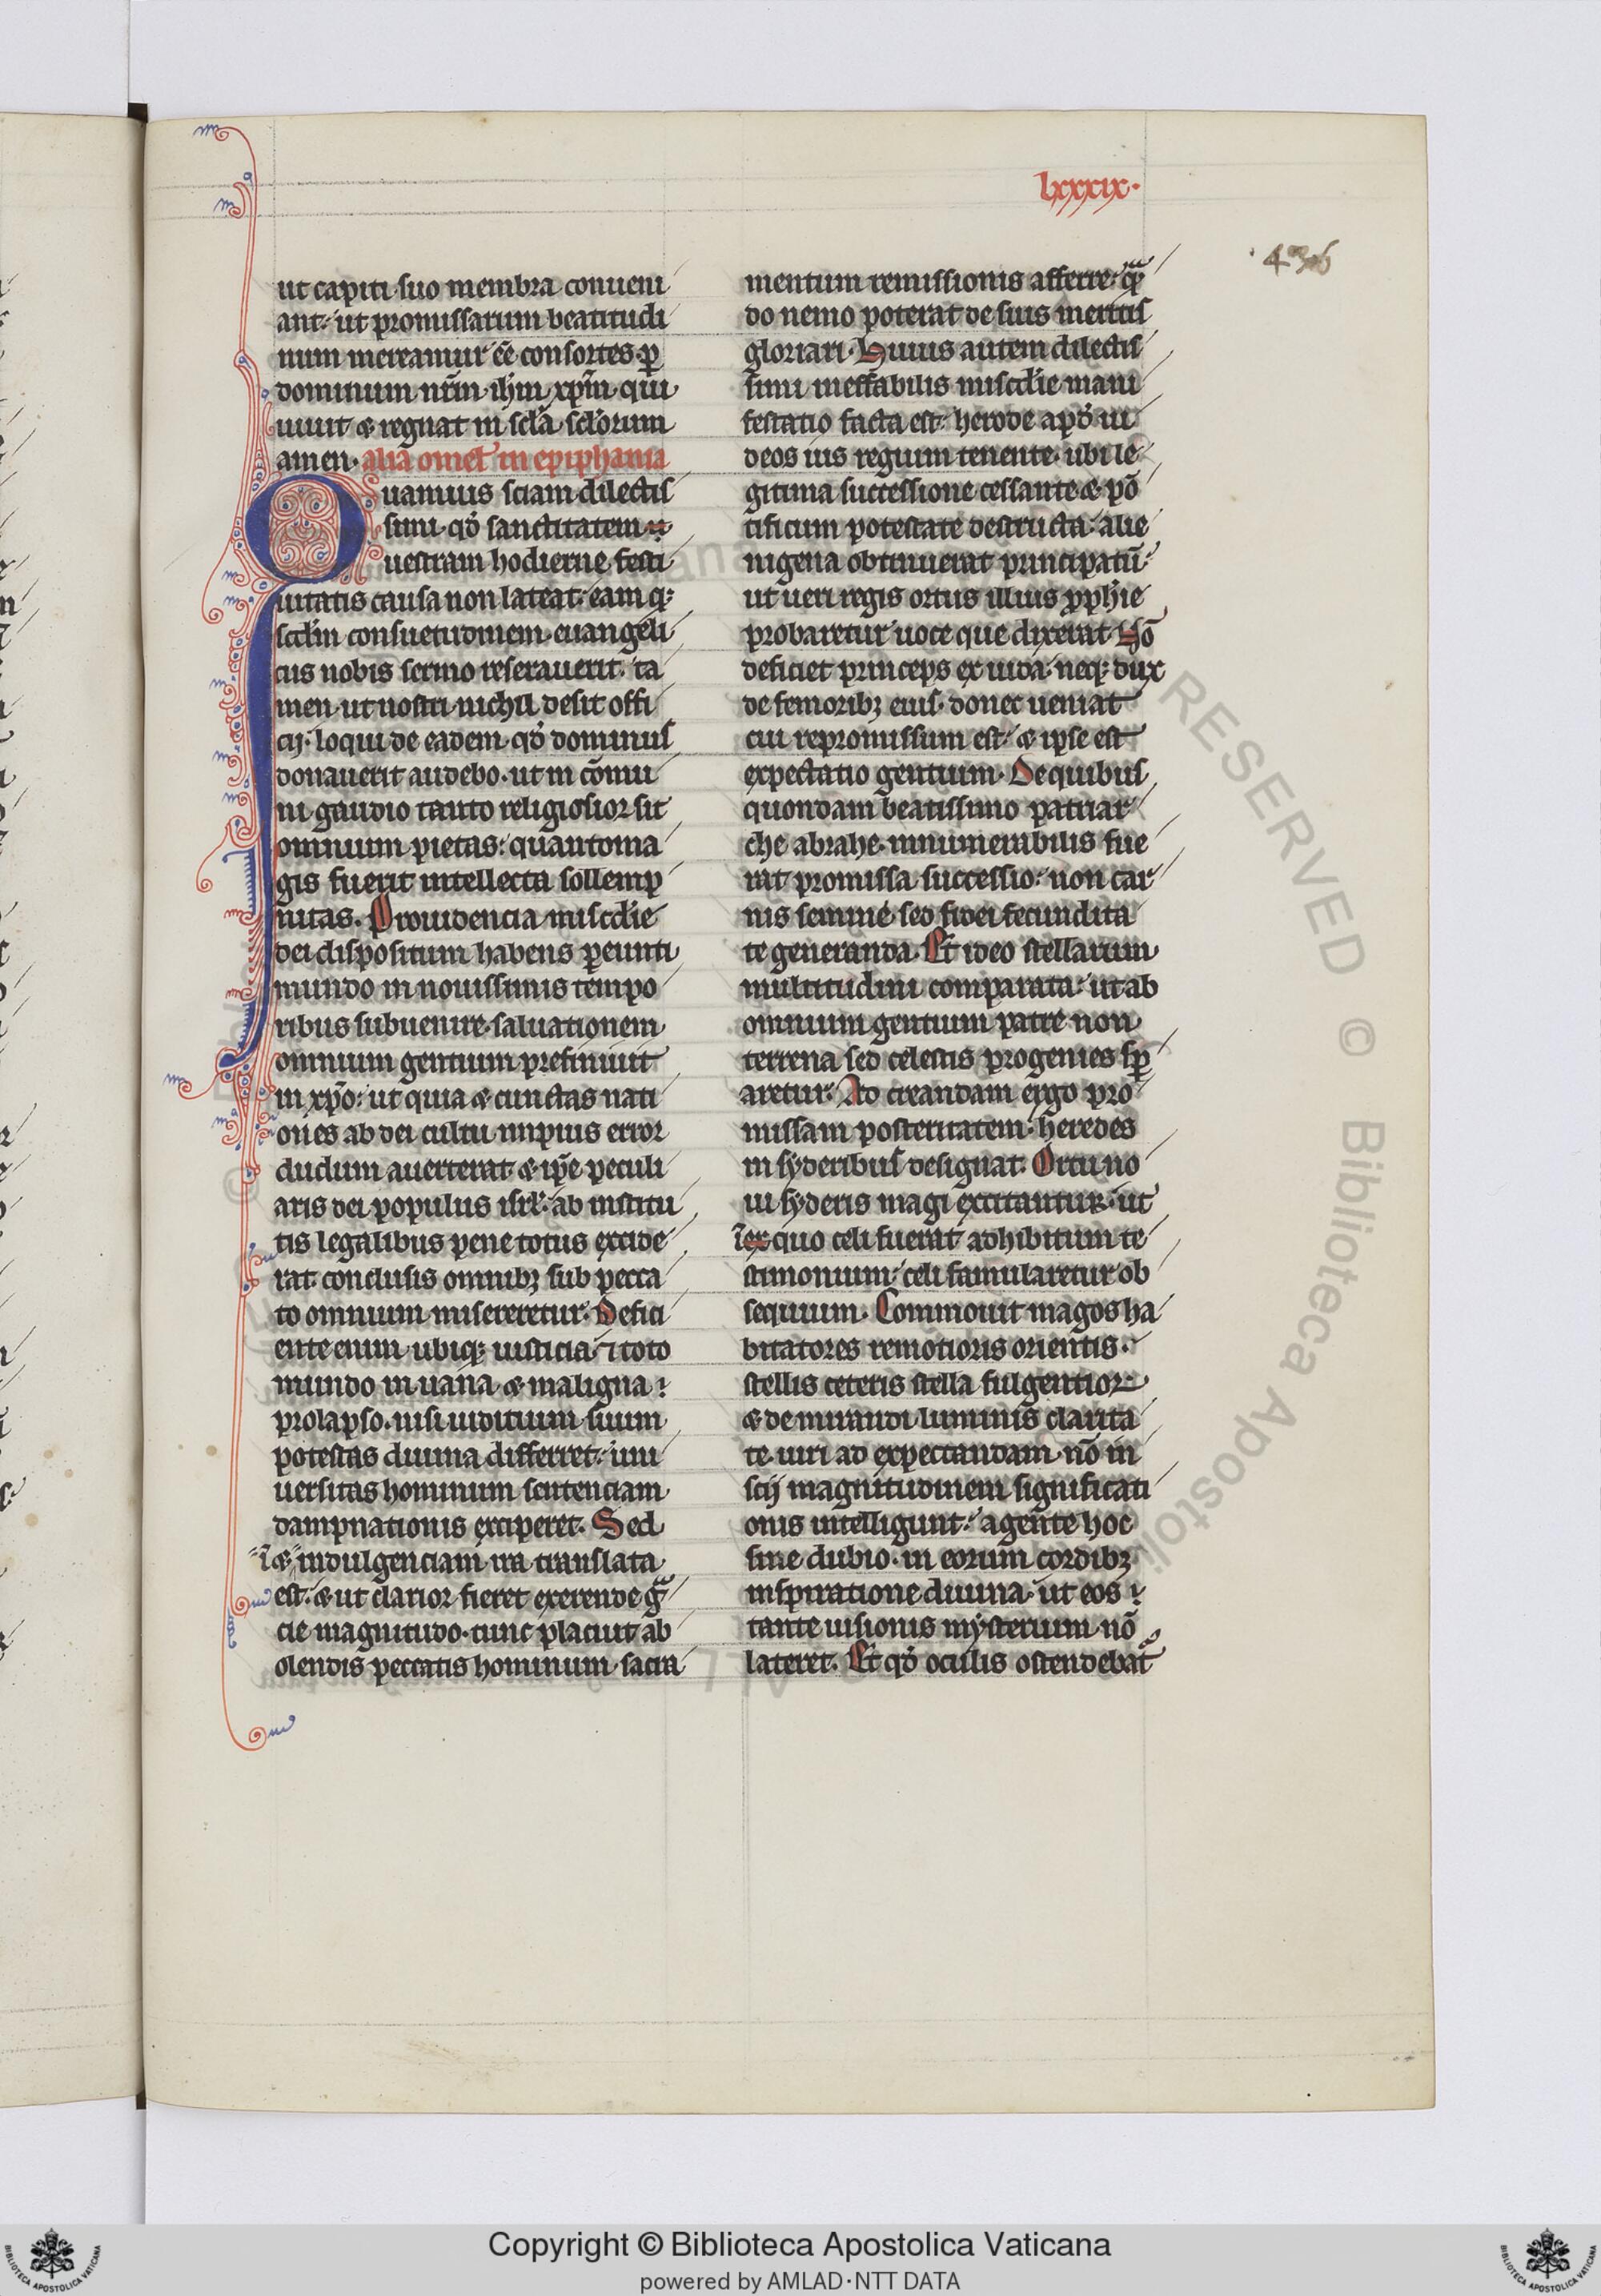 lxxxix·
· 436
ut capiti suo membra conueni
ant· ut promissarum beatitudi
num mereamur ee̅ consortes· ꝑ
dominum nr̅m· ihm̅ xpm̅· qui
uiuit ⁊ regnat in scl̅a· scl̅orum
amen· alia omel̅ in epiphania
Quamuis sciam dilectis
simi· qd̅ sanctitatem
uestram hodierne festi
uitatis causa non lateat· eam qꝫ
scd̅m consuetudinem· euangeli
cus nobis sermo reserauerit· ta
men· ut nostri nichil desit offi
cij· loqui de eadem· qd̅ dominus
donauerit audebo· ut in co̅mu
ni gaudio tanto religiosior sit
omnium pietas· quanto ma
gis fuerit intellecta sollemp
nitas· Prouidencia misc̅die
dei dispositum habens ꝑeunti
mundo in nouissimis tempo
ribus subuenire· saluationem
omnium gentium prefiniuit
in xpo̅· ut quia ⁊ cunctas nati
ones ab dei cultu impius error
dudum auerterat· ⁊ ip̅e peculi
aris dei populus isrl̅· ab institu
tis legalibus pene totus excide
rat· conclusis omnibꝫ sub pecca
to omnium misereretur· Defici
ente enim ubiqꝫ iusticia ⁊ toto
mundo in uana ⁊ maligna
prolapso· nisi iuditium suum
potestas diuina differret· uni
uersitas hominum sentenciam
dampnationis exciperet· Sed
i̅ ⁊ indulgenciam ira translata
est· ⁊ ut clarior fieret exerende gͣ
cie magnitudo· tunc placuit ab
olendis peccatis hominum· sacra
mentum remissionis afferre· qͣn
do nemo poterat de suis meritis
gloriari· Huius autem dilectis
simi ineffabilis misc̅die mani
festatio facta est· herode apd̅ iu
deos ius regium tenente· ubi le
gitima successione cessante ⁊ po̅
tificum potestate destructa· alie
nigena obtinuerat principatu̅·
ut ueri regis ortus illius ꝓph̅ie
probaretur uoce que dixerat· No̅
deficiet princeps ex iuda· neqꝫ dux
de femoribꝫ eius· donec ueniat
cui repromissum est· ⁊ ipse est
expectatio gentium· De quibus
quondam beatissimo patriar
che abrahe· innumerabilis fue
rat promissa successio· non car
nis semine· sed fidei fecundita
te generanda· Et ideo stellarum
multitudini comparata· ut ab
omnium gentium patre non
terrena sed celestis progenies sꝑ
aretur· Ad creandam ergo pro
missam posteritatem· heredes
in syderibus designat· Ortu no
ui syderis magi excitantur· ut
i̅ ex quo celi fuerat adhibitum te
stimonium· celi famularetur ob
sequium· Commouit magos ha
bitatores remotioris orientis·
stellis ceteris stella fulgentior·
⁊ de mirandi luminis clarita
te· uiri ad expectandam no̅ in
scij magnitudinem significati
onis intelligunt· agente hoc
sine dubio· in eorum cordibꝫ
inspiratione diuina· ut eos
tante uisionis mysterium no̅
lateret· Et qd̅ oculis ostendebat᷑
RESERVED © Biblioteca Apostoli
Copyright © Biblioteca Apostolica Vaticana
powered by AMLAD·NTT DATA
BIBLIOTECA APOSTOLICA VATICANA
BIBLIOTECA APOSTOLICA VATICANA